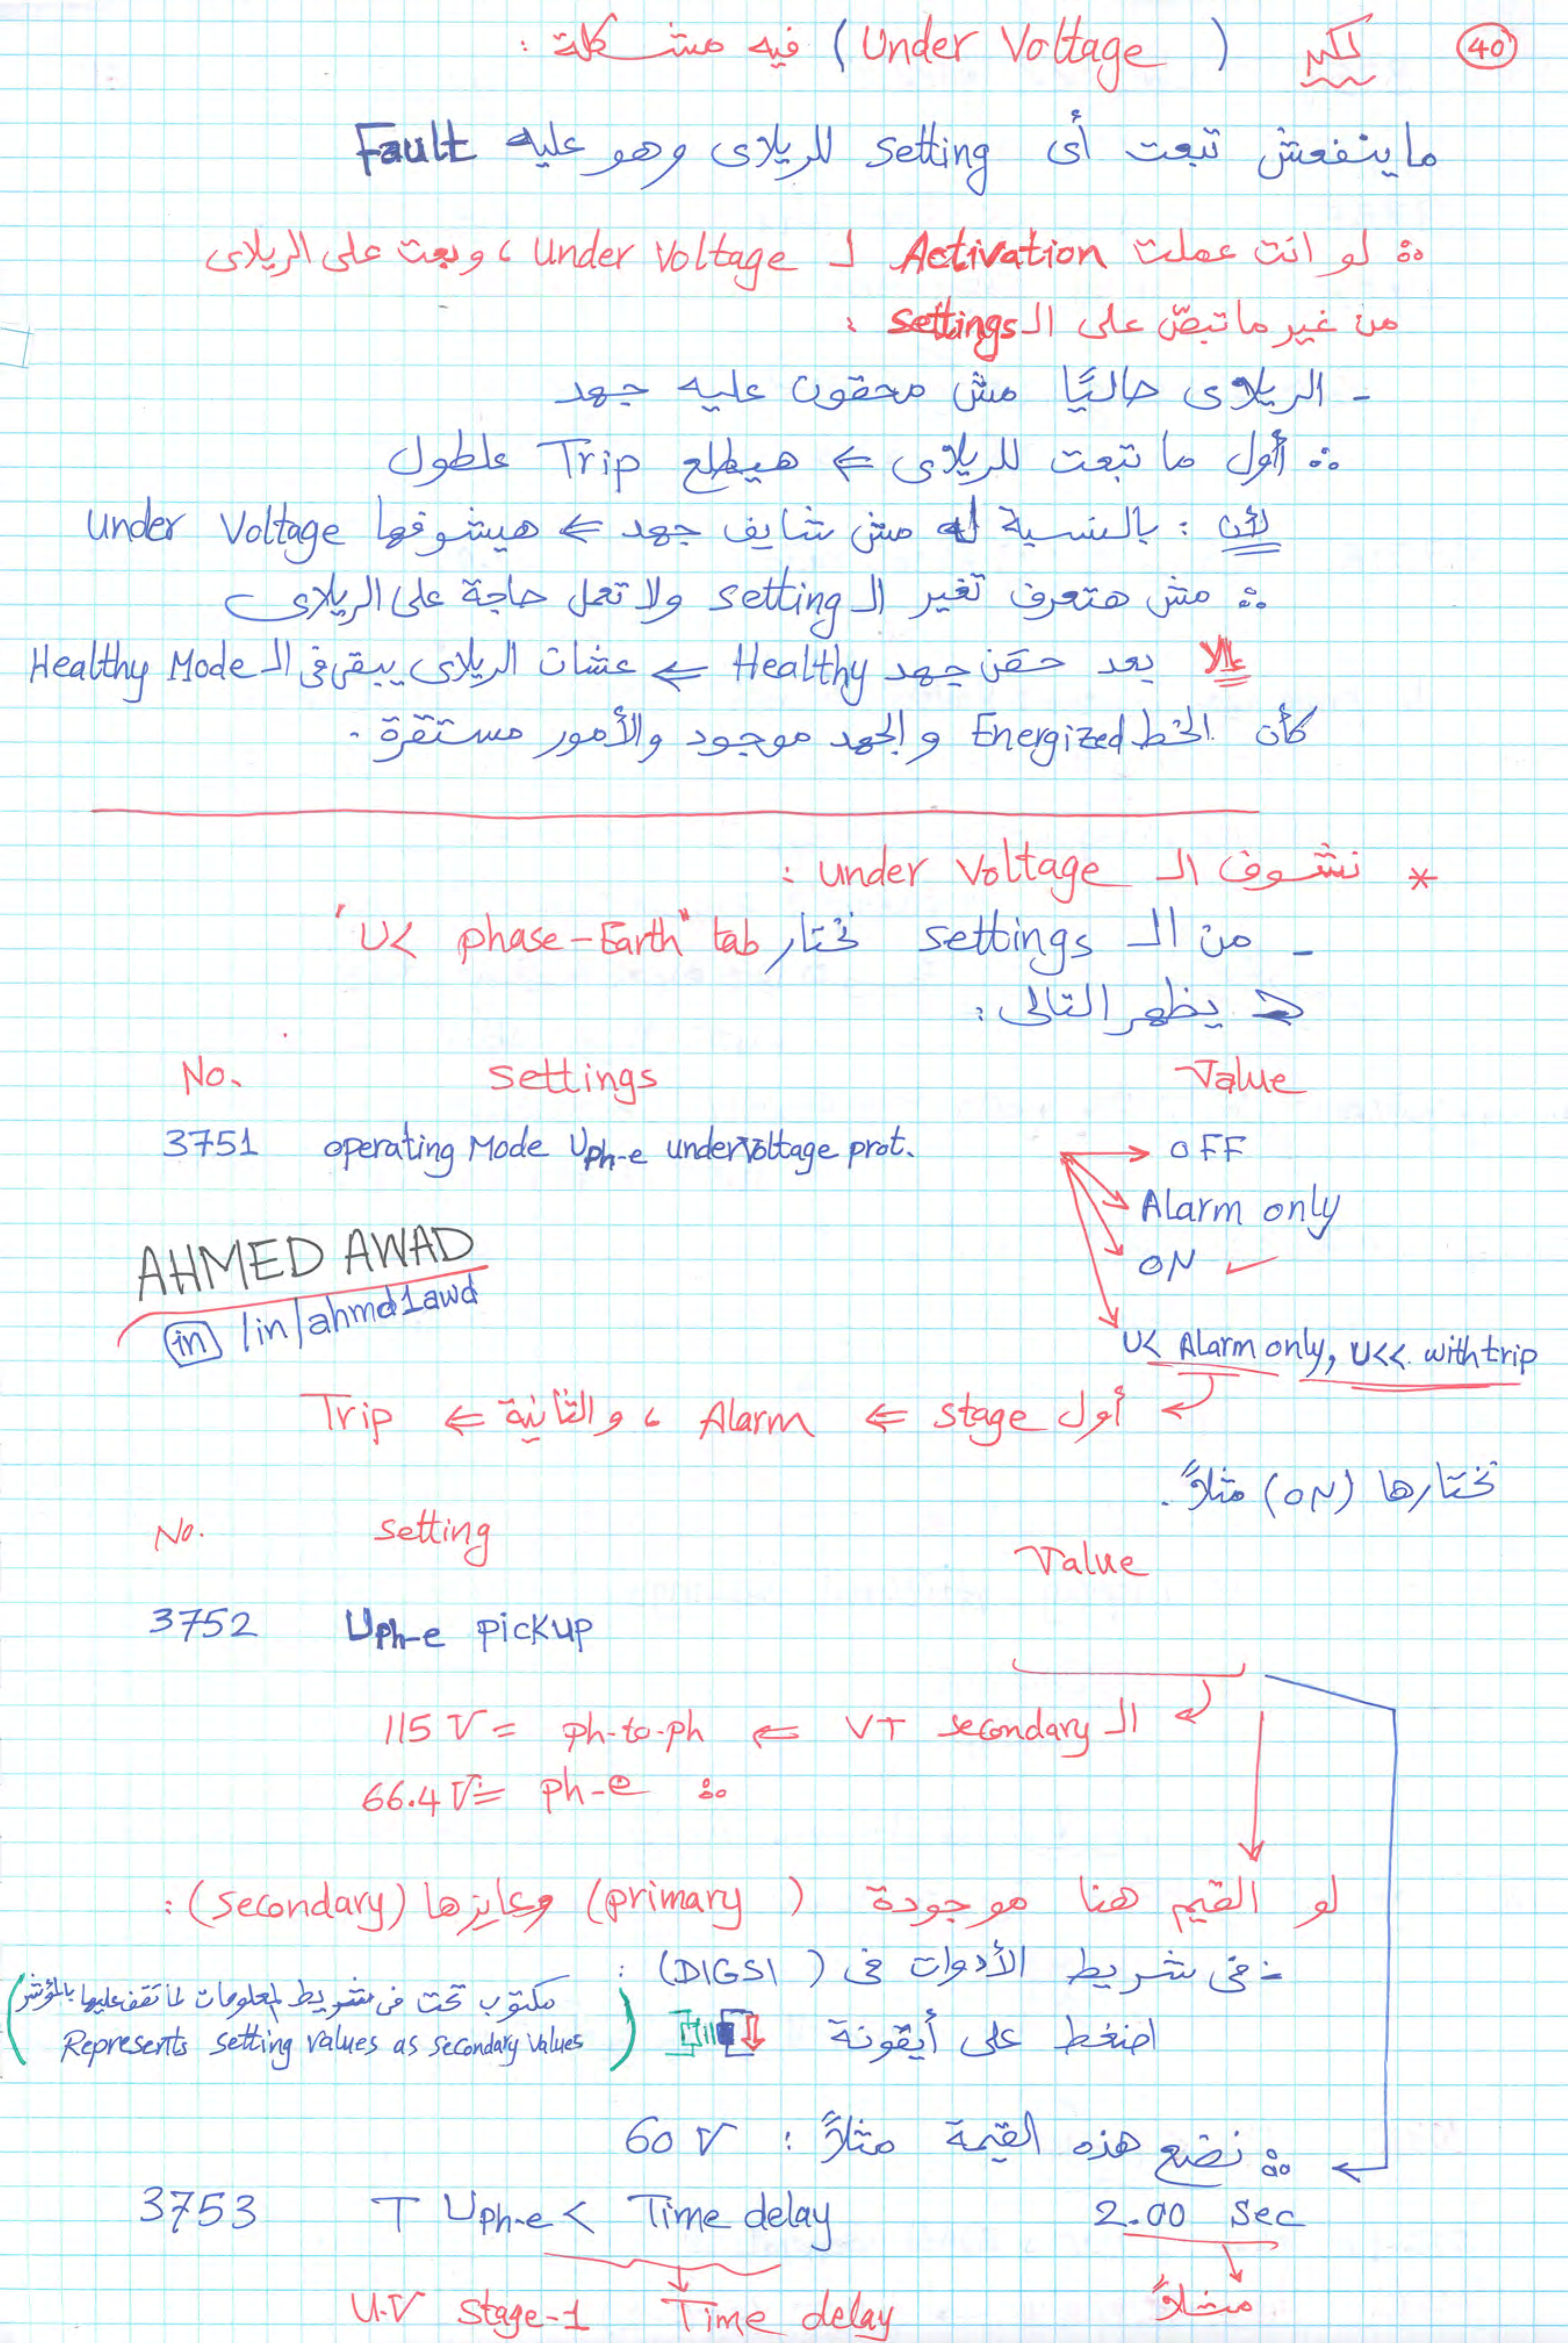 40
لكن (Under Voltage) فيه مشكلة :
ماينفعش تبعت أى setting للريلاى وهو عليه Fault
∴ لو انت عملت Activation لـ Under Voltage ، وبعت على الريلاى
من غير ماتبصّ على الـ settings :
- الريلاى حاليًا مش محقون عليه جهد
∴ أول ما تبعت للريلاى ⇐ هيطلع Trip علطول
لأن : بالنسبة له مش شايف جهد ⇐ هيشوفها Under Voltage
∴ مش هتعرف تغير الـ setting ولا تعمل حاجة على الريلاى
إلا بعد حقن جهد Healthy ⇐ عشان الريلاى يبقى فى الـ Healthy Mode
كأن الخط Energized والجهد موجود والأمور مستقرة .
* نشوف الـ Under Voltage :
- من الـ settings نختار tab "U< phase-Earth"
⇐ يظهر التالى :
No. Settings Value
3751 operating Mode Uph-e undervoltage prot. → OFF
Alarm only
ON ✓
U< Alarm only, U<< with trip
AHMED AWAD
in /in/ahmd1awd
أول stage ⇐ Alarm ، والثانية ⇐ Trip
نختارها (ON) مثلاً .
No. Setting Value
3752 Uph-e pickup
الـ VT secondary ⇐ ph-to-ph = 115 V
∴ ph-e = 66.4 V
لو القيم هنا موجودة (primary) وعايزها (secondary) :
- فى شريط الأدوات فى (DIGSI) :
اضغط على أيقونة
(مكتوب تحت فى شريط المعلومات لما تقف عليها بالمؤشر
Represents setting values as secondary values)
∴ نضع هذه القيمة مثلاً : 60 V
3753 T Uph-e < Time delay 2.00 Sec
U.V stage-1 Time delay مثلاً